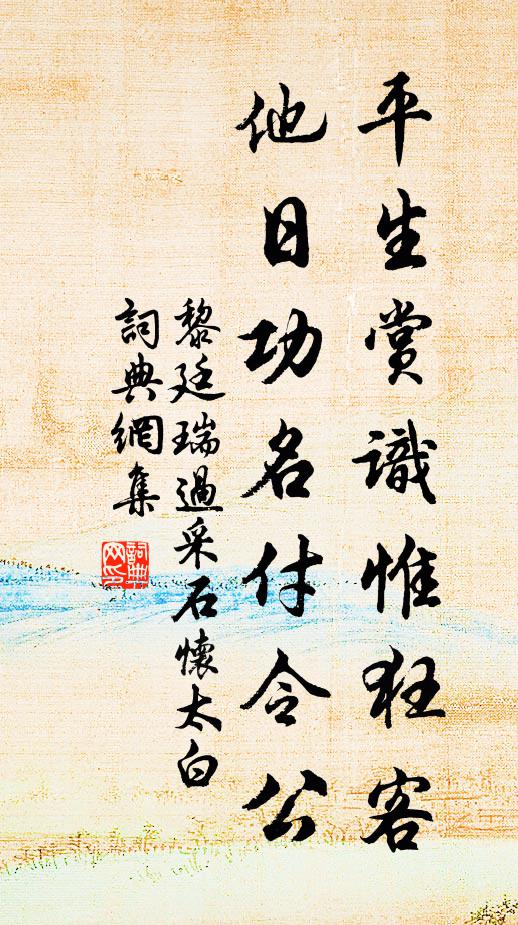 平生賞識惟狂客
他日功名付令公
黎廷瑞過采石懷太白
詞典網集
詞典網印